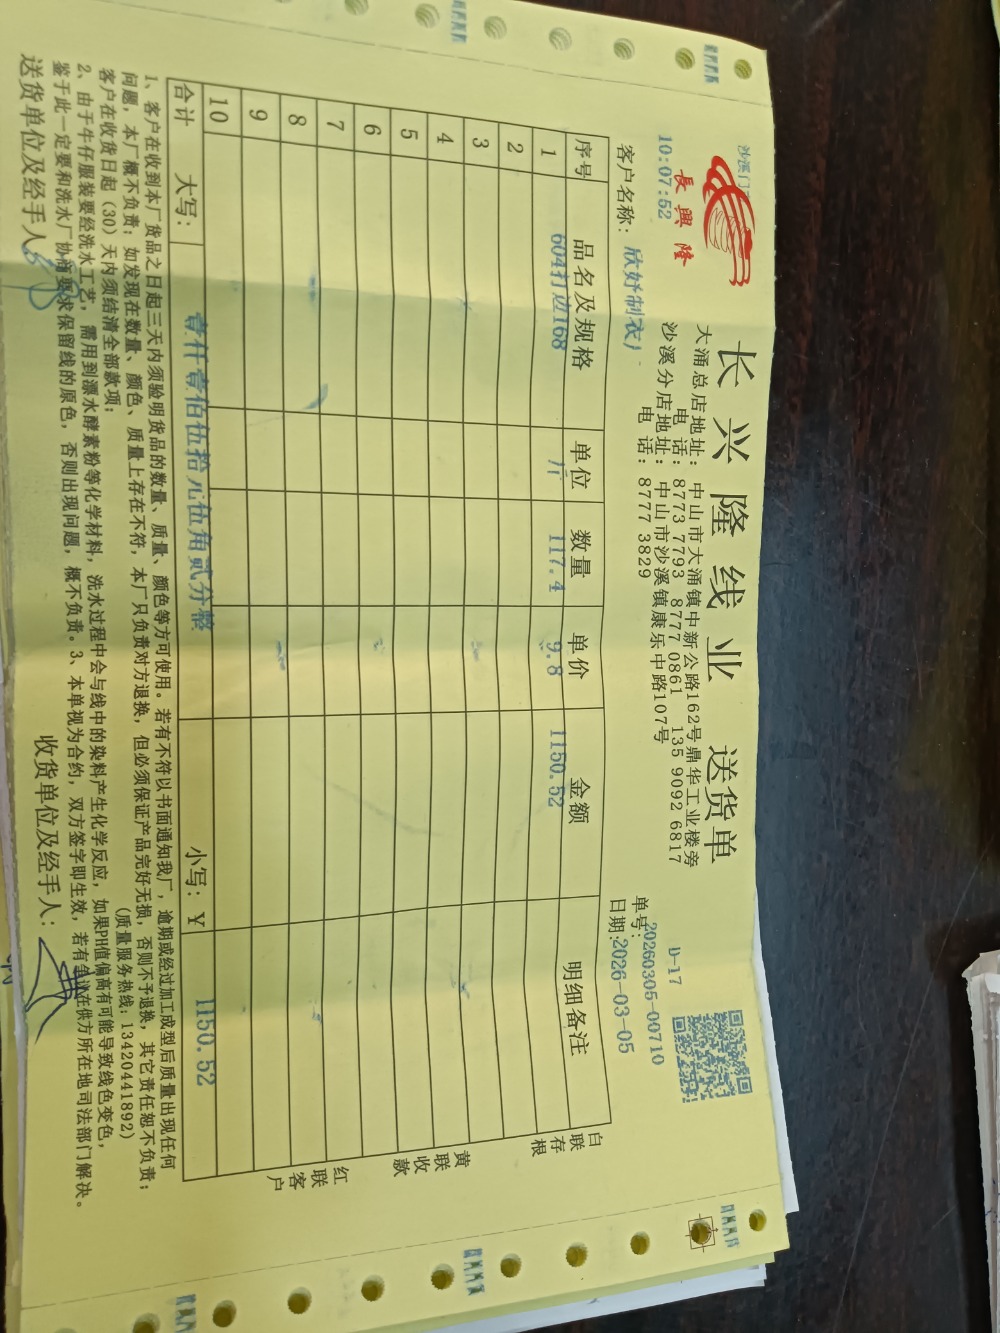 長興隆
10:07:52
长兴隆线业 送货单
大涌总店地址: 中山市大涌镇中新公路162号鼎华工业楼旁
电 话: 8773 7793 8777 0861 135 9092 6817
沙溪分店地址: 中山市沙溪镇康乐中路107号
电 话: 8777 3829
D-17
单号:20260305-00710
日期:2026-03-05
客户名称: 欣妤制衣厂
序号 品名及规格 单位 数量 单价 金额 明细备注
1 604打边168 斤 117.4 9.8 1150.52
2
3
4
5
6
7
8
9
10
合计 大写: 壹仟壹佰伍拾元伍角贰分整 小写: ¥ 1150.52
白联存根
黄联收款
红联客户
1、客户在收到本厂货品之日起三天内须验明货品的数量、质量、颜色等方可使用。若有不符以书面通知我厂,逾期或经过加工成型后质量出现任何
问题,本厂概不负责;如发现在数量、颜色、质量上存在不符,本厂只负责对方退换,但必须保证产品完好无损,否则不予退换,其它责任恕不负责;
客户在收货日起(30)天内须结清全部款项; (质量服务热线:13420441892)
2、由于牛仔服装要经洗水工艺,需用到漂水酵素粉等化学材料,洗水过程中会与线中的染料产生化学反应,如果PH值偏高有可能导致线色变色,
鉴于此一定要和洗水厂协商要求保留线的原色,否则出现问题,概不负责。3、本单视为合约,双方签字即生效,若有争议在供方所在地司法部门解决。
送货单位及经手人: 收货单位及经手人: